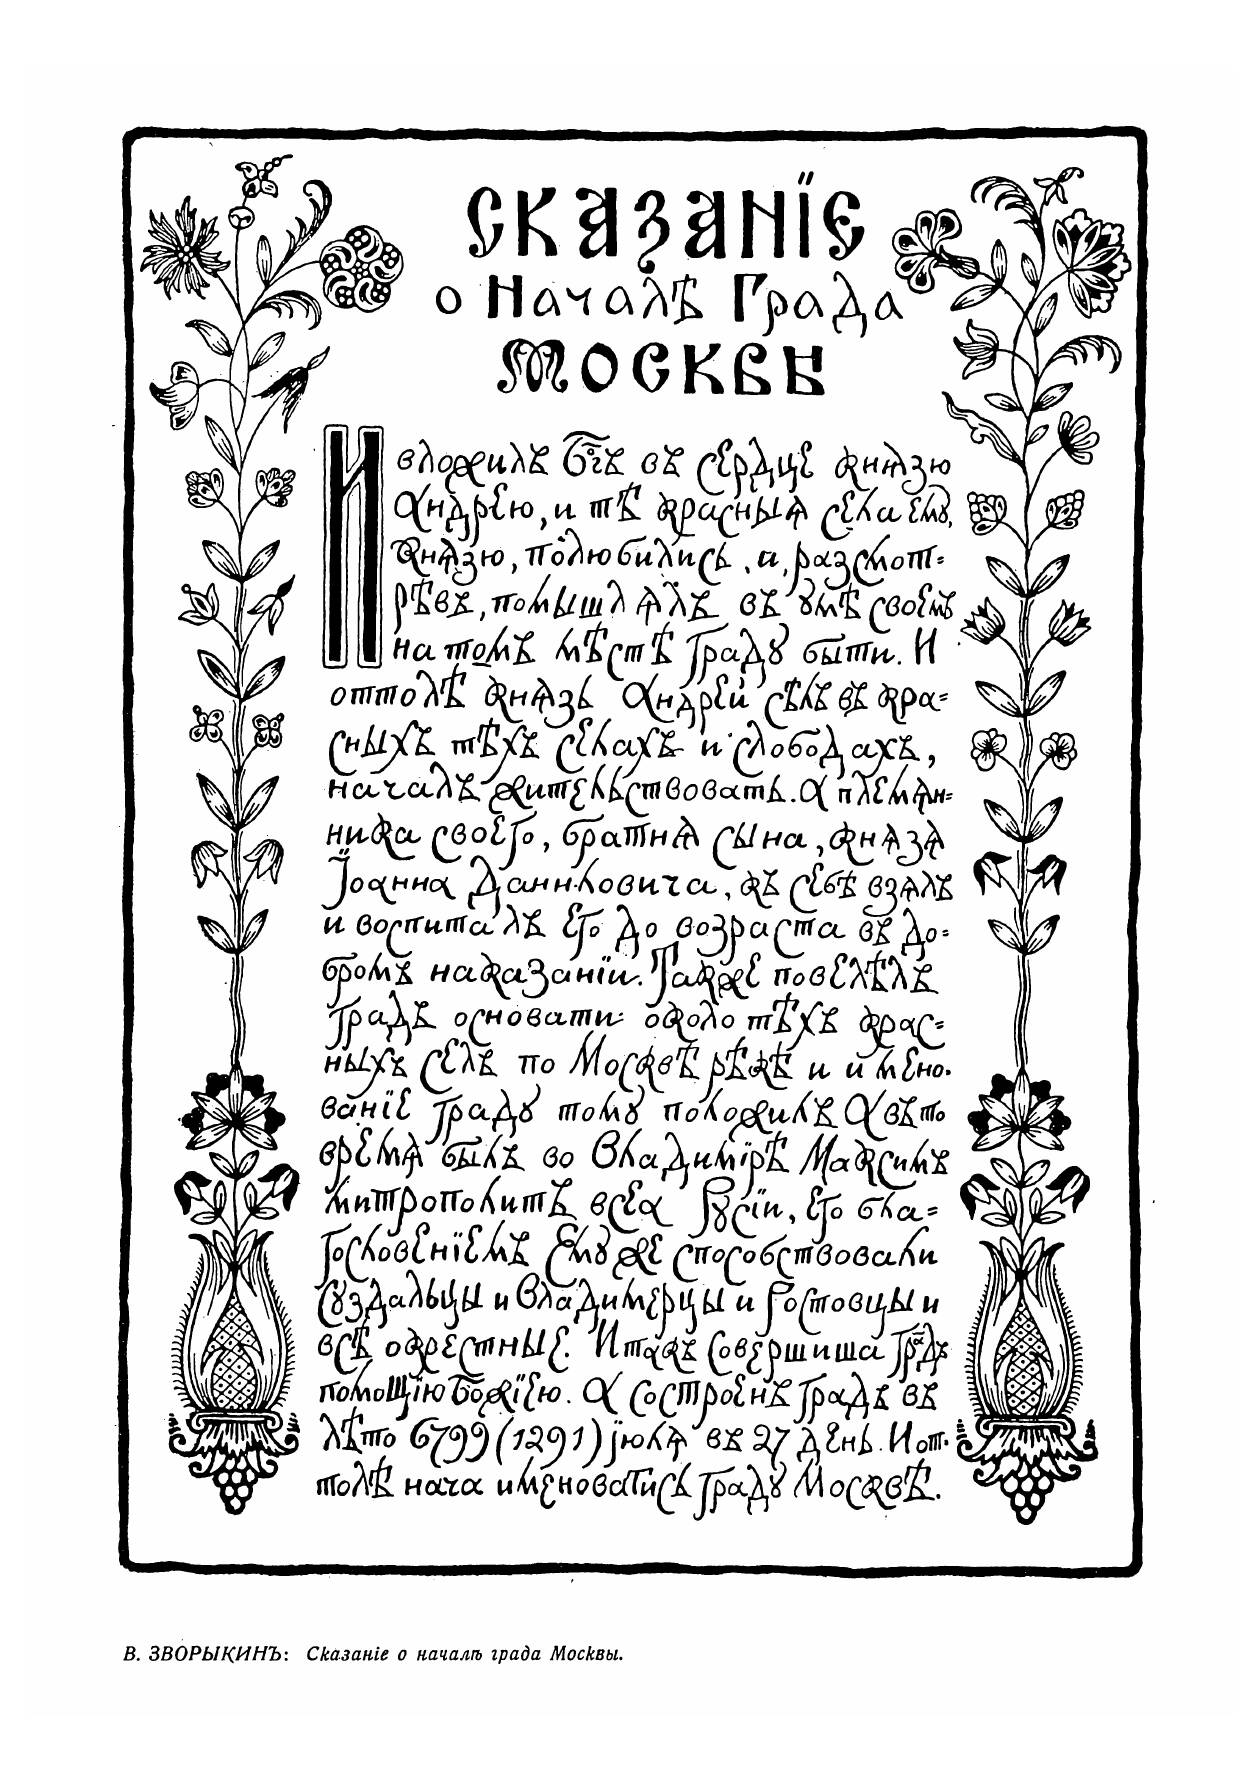 СКАЗАНЇЕ
о Началѣ Града
МОСКВЫ
И вложилъ Бг҃ъ въ сердце князю
Андрею, и тѣ красныя села ему,
князю, полюбились, и, разсмот=
рѣвъ, помышлялъ въ умѣ своемъ
на томъ мѣстѣ граду быти. И
оттолѣ князь Андрей сѣлъ въ кра=
сныхъ тѣхъ селахъ и слободахъ,
началъ жительствовать. А племян=
ника своего, братня сына, князя
Їоанна Данииловича, къ себѣ взялъ
и воспиталъ его до возраста въ до=
бромъ наказанїи. Также повелѣлъ
градъ основати около тѣхъ крас=
ныхъ селъ по Москвѣ рѣкѣ и имено-
ванїе граду тому положилъ А въ то
время былъ во Владимїрѣ Максимъ
митрополитъ всеа Русїи, его бла=
гословенїемъ Ему же способствовали
Суздальцы и Владимерцы и Ростовцы и
всѣ окрестные. И такъ совершиша градъ
помощїю Божїею. А состроенъ градъ въ
лѣто 6799 (1291) їюля въ 27 день. И от-
толѣ нача именоватись граду Москвѣ.
В. ЗВОРЫКИНЪ: Сказаніе о началѣ града Москвы.